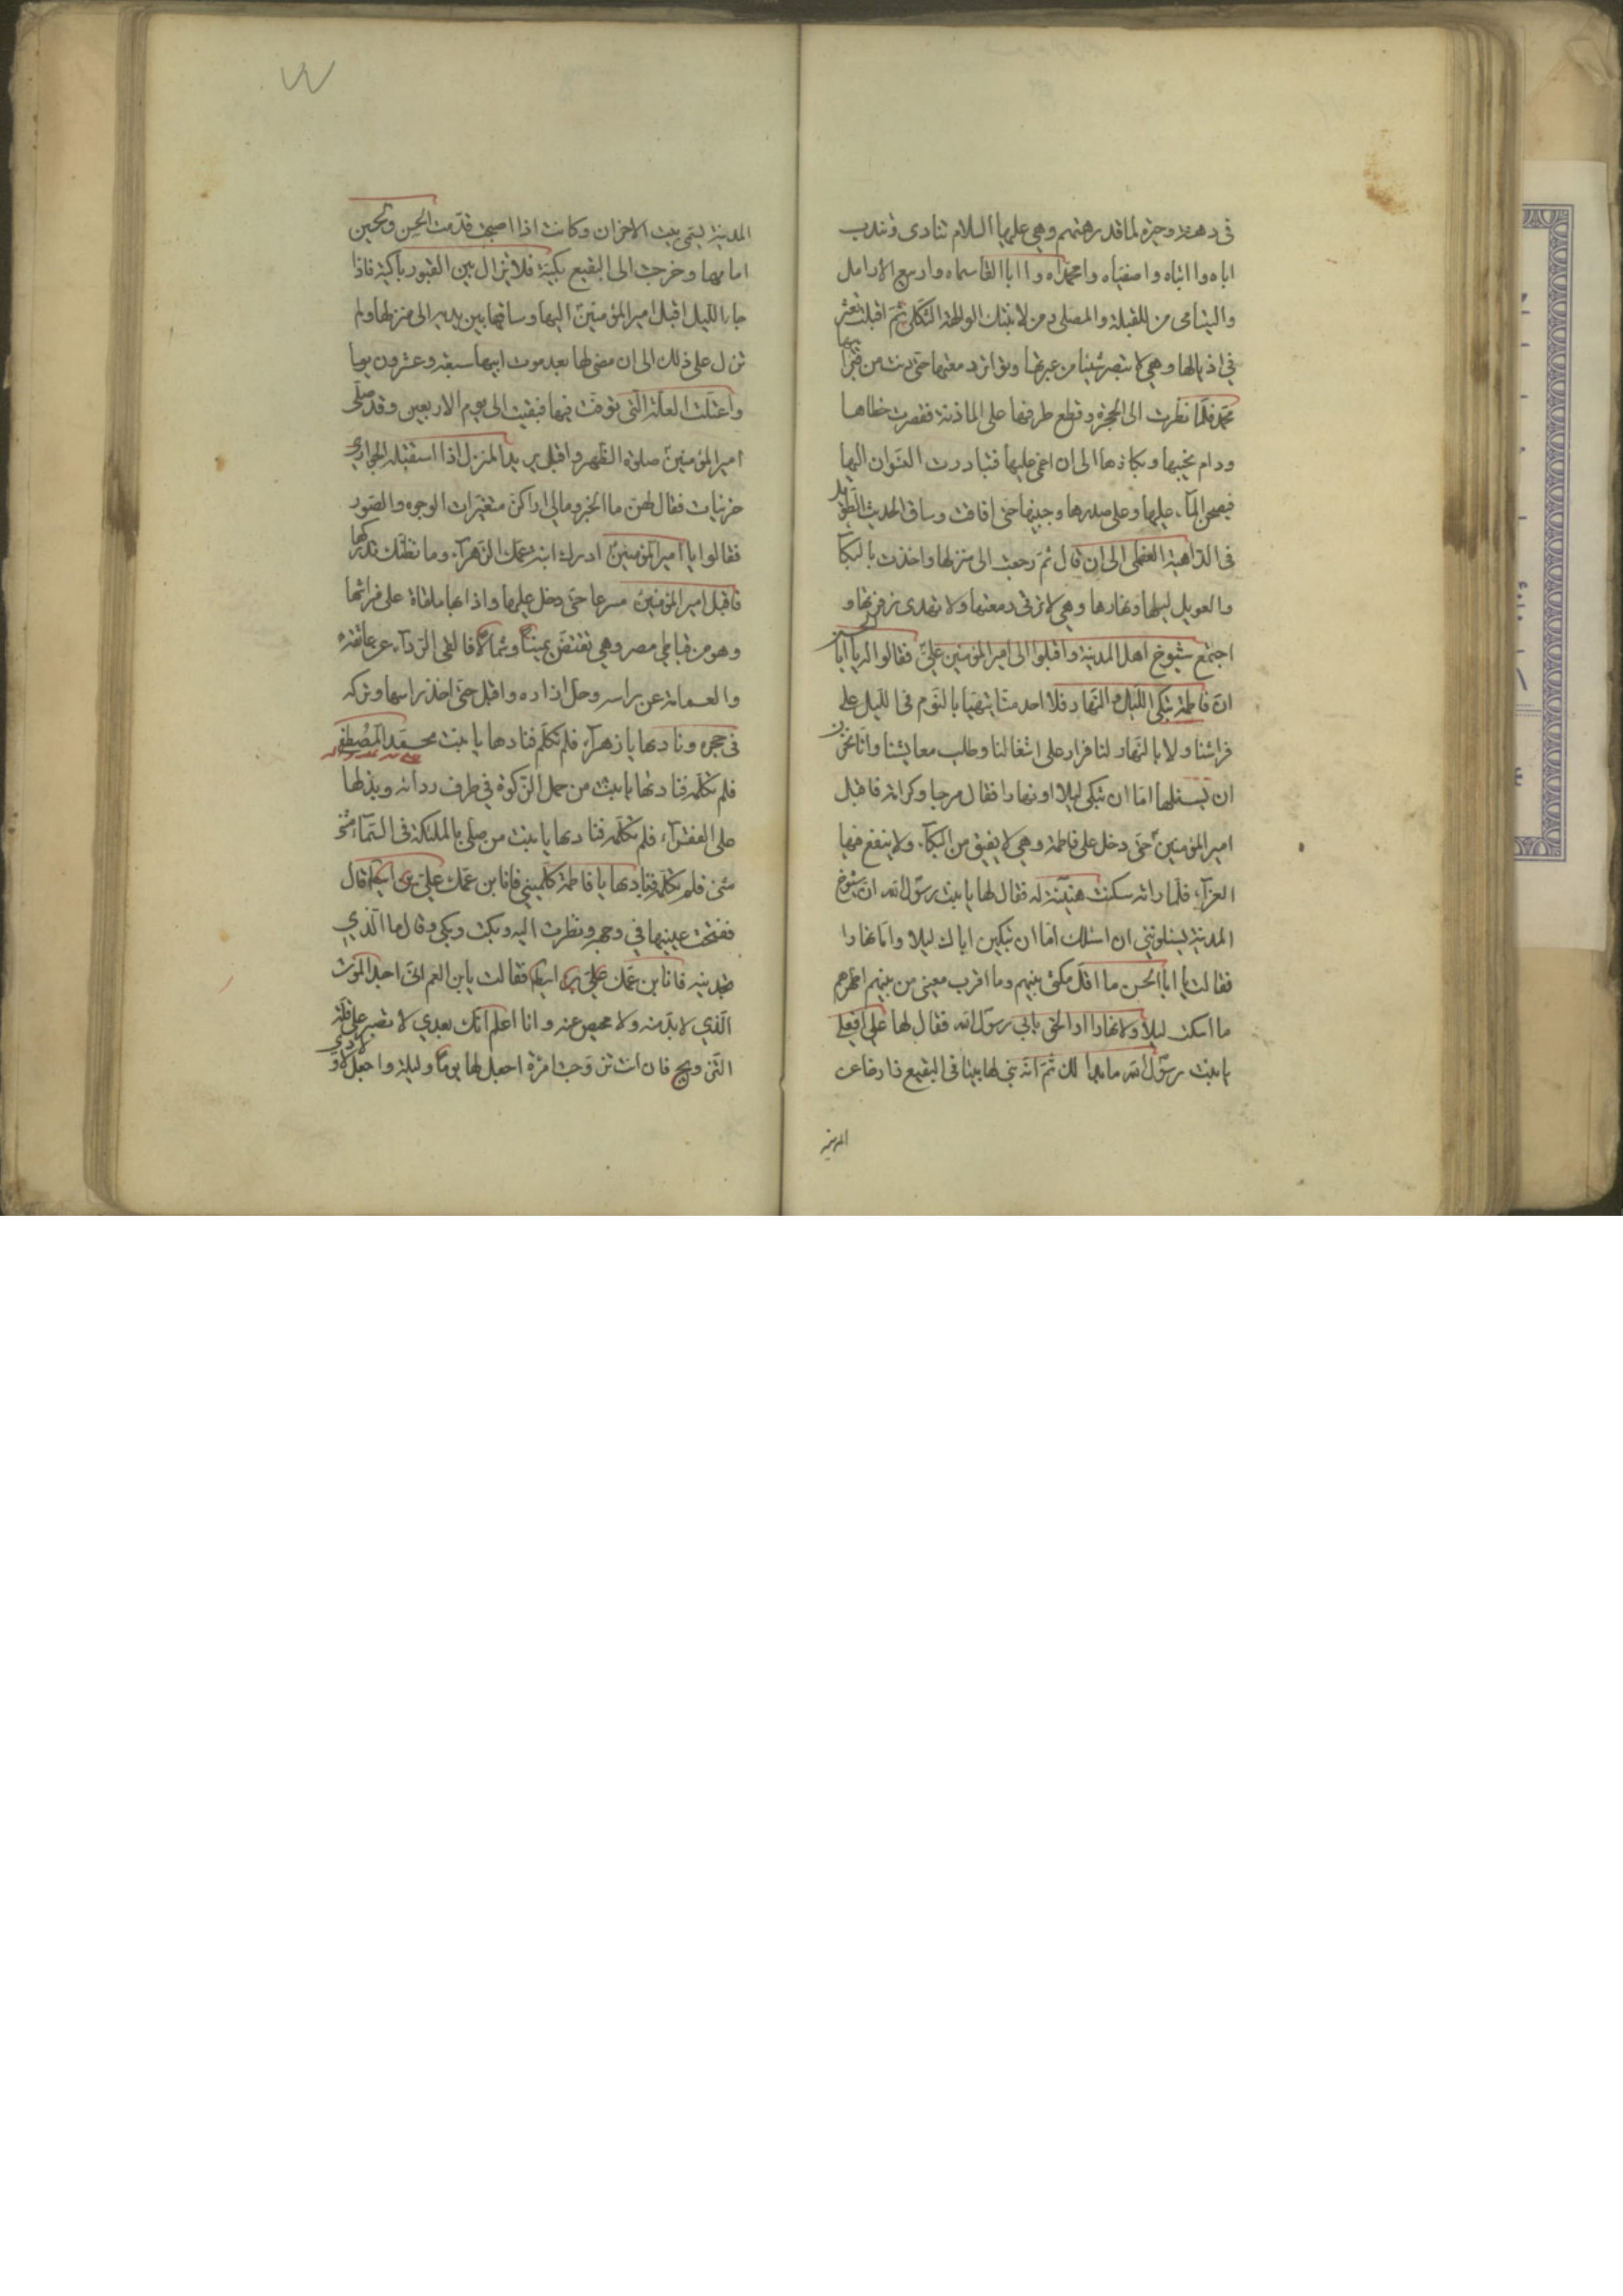 فى دهشة وحيرة لما قد رهقهم وهي عليها السلام تنادى وتندب
اباه وا ابتاه واصفياه وا محمداه وا ابا القاسماه وا ربيع الارامل
واليتامى من للقبلة والمصلى ومن لابنتك الوالهة الثكلى ثم اقبلت تعثر
في اذيالها وهي لا تبصر شيئا من عبرتها وتواتر دمعتها حتى دنت من قبر ابيها
محمد فلما نظرت الى الحجرة وقع طرفها على الماذنة فقصرت خطاها
ودام نحيبها وبكاؤها الى ان اغمى عليها فتبادرت النسوان اليها
فنضحن المآء عليها وعلى صدرها وجبينها حتى افاقت وساق الحديث الطويل
فى الداهية العظمى الى ان قال ثم رجعت الى منزلها واخذت بالبكآ
والعويل ليلها ونهارها وهي لا ترقى دمعتها ولا تهدى زفرتها و
اجتمع شيوخ اهل المدينة واقبلوا الى امير المؤمنين علىّ فقالوا له يا ابا الحسن
انّ فاطمة تبكى الليل والنهار فلا احد منّا يتهنّا بالنوم فى الليل على
فراشنا ولا بالنهار لنا قرار على اشغالنا وطلب معايشنا وانا نخيّرك
ان تسئلها اما ان تبكى ليلا او نهارا فقال حبا وكرامة فاقبل
امير المؤمنين حتى دخل على فاطمة وهي لا تفيق من البكآء ولا ينفع فيها
العزآء فلما راته سكنت هنيئة له فقال لها يا بنت رسول الله ان شيوخ
المدينة يسئلونني ان اسئلك اما ان تبكين اباك ليلا واما نهارا
فقالت يا ابا الحسن ما اقل مكثى بينهم وما اقرب مغيبى من بين اظهرهم
ما اسكت ليلا ولا نهارا او الحق بابى رسول الله فقال لها على افعلى
يا بنت رسول الله ما بدا لك ثم انه بنى لها بيتا فى البقيع نازحا عن
المدينة
المدينة يسمى بيت الاحزان وكانت اذا اصبحت قدّمت الحسن والحسين
امامها وخرجت الى البقيع باكية فلا تزال بين القبور باكية فاذا
جاء الليل اقبل امير المؤمنين اليها وساقها بين يديه الى منزلها ولم
تزل على ذلك الى ان مضى لها بعد موت ابيها سبعة وعشرون يوما
واعتلت العلة التى توفت فيها فبقيت الى يوم الاربعين وقد صلى
امير المؤمنين صلوة الظهر واقبل يريد المنزل اذا استقبلته الجواري
حزينات فقال لهن ما الخبر ومالى اراكن متغيرات الوجوه والصور
فقالوا يا امير المؤمنين ادرك ابنة عمك الزهرآء وما نظنك تدركها
فاقبل امير المؤمنين مسرعا حتى دخل عليها واذا بها ملقاة على فراشها
وهو من قباطي مصر وهي تقبض يمينا وشمالا فالقى الردآء عن عاتقه
والعمامة عن راسه وحل ازاره واقبل حتى اخذ راسها وتركه
فى حجره ونادها يا زهرآء فلم تكلم فنادها يا بنت محمد المصطفى
فلم تكلمه فنادها يا بنت من حمل الزكوة في طرف ردائه وبذلها
على الفقرآء فلم تكلمه فنادها يا بنت من صلى بالملئكة فى السمآء مثنى
مثنى فلم تكلمه فنادها يا فاطمة كلمينى فانا ابن عمك علي بن ابيطالب قال
ففتحت عينيها في وجهه ونظرت اليه وبكت وبكى وقال ما الذي
تجدينه فانا ابن عمك علي بن ابيطالب فقالت يابن العم انى اجد الموت
الذي لا بد منه ولا محيص عنه وانا اعلم انك بعدي لا تصبر على قلة
التزويج فان انت تزوجت امرأة اجعل لها يوما وليلة واجعل لاولادي